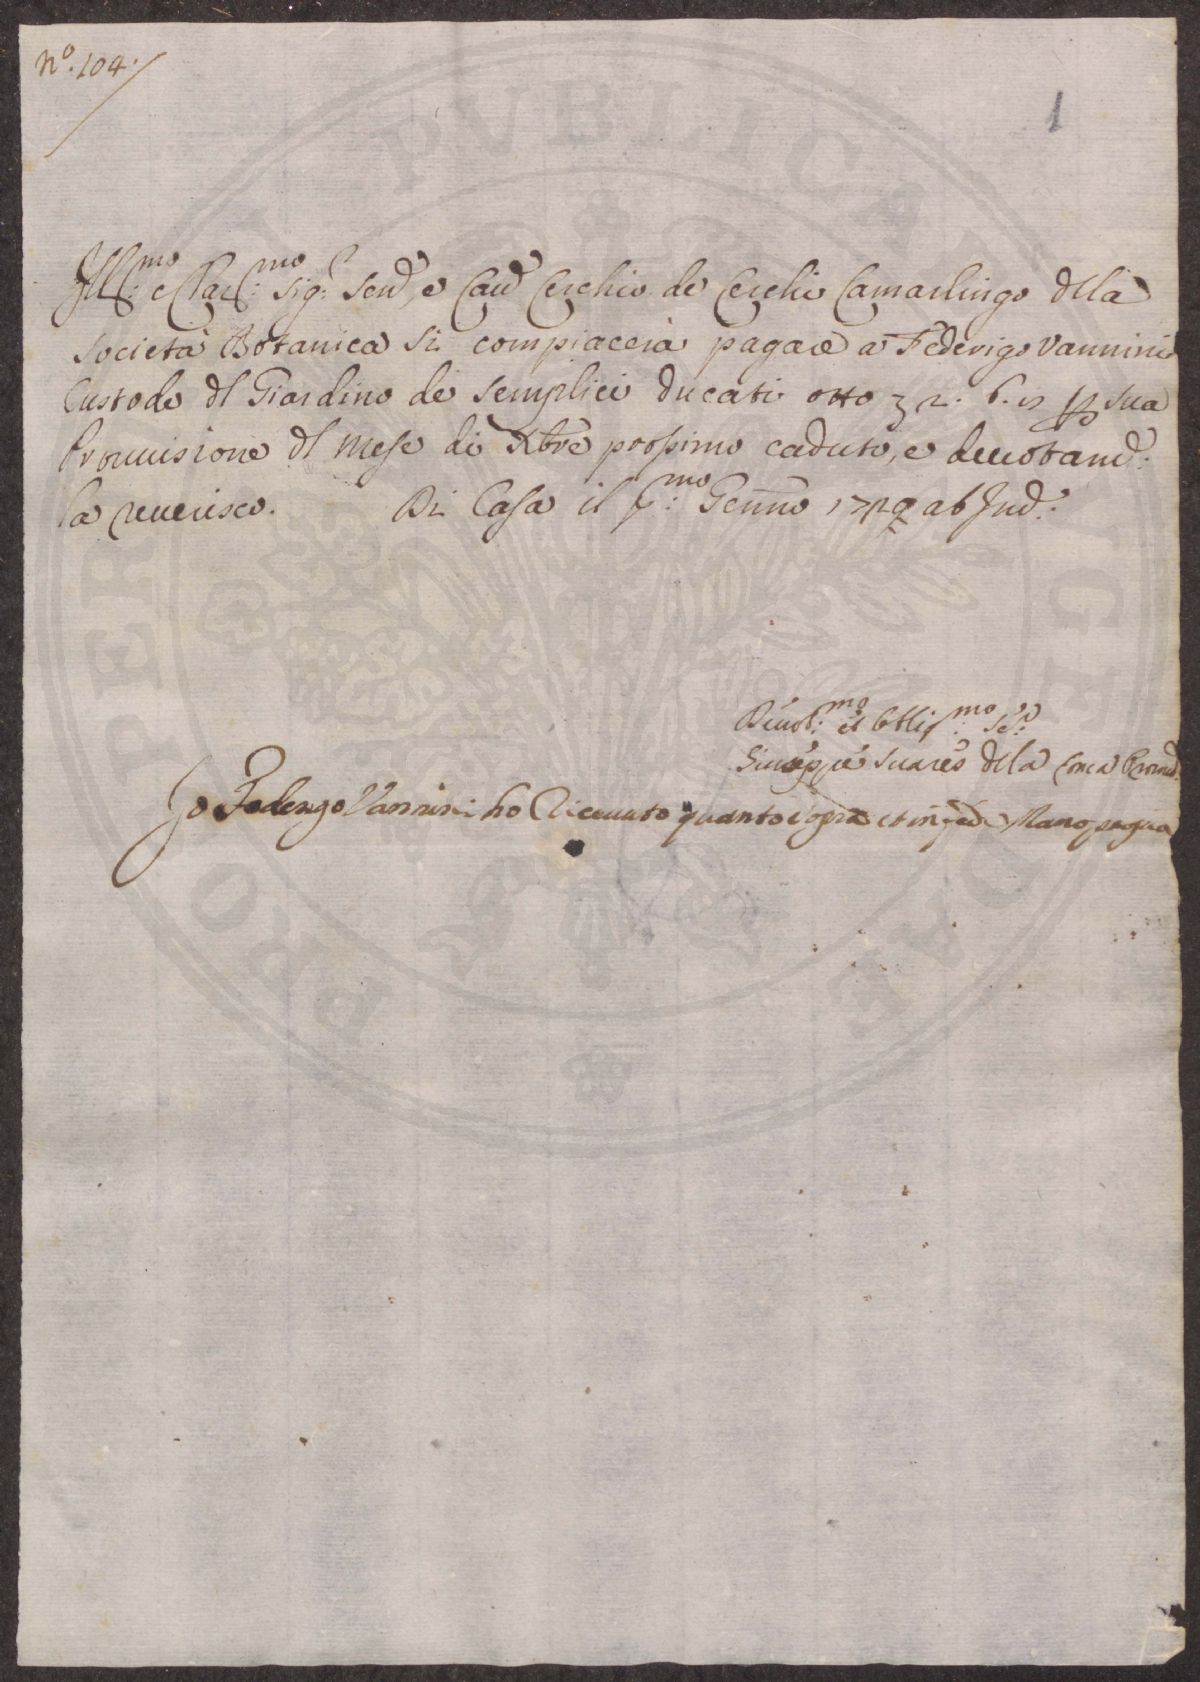 N.º 104.
1
Ill.mo e Clar.mo Sig.r Sen.e, e Cau.e Cerchio de Cerchi Camarlingo dlla
Società Botanica si compiacerà pagare a Federigo Vannini
Custode dl Giardino de Semplici ducati otto 2. 6. sua
Prouuisione dl Mese di Xbre prossimo caduto, e deuotam.e
la reuerisco. Di Casa il p.mo Genn.o 172 ab Ind.
Deuot.mo et Obblig.mo Se.
Giuseppe Suares dlla Conca Proued.
Io Federigo Vannini ho Riceuuto quanto sopra et in fede Mano propria
PUBLICAE